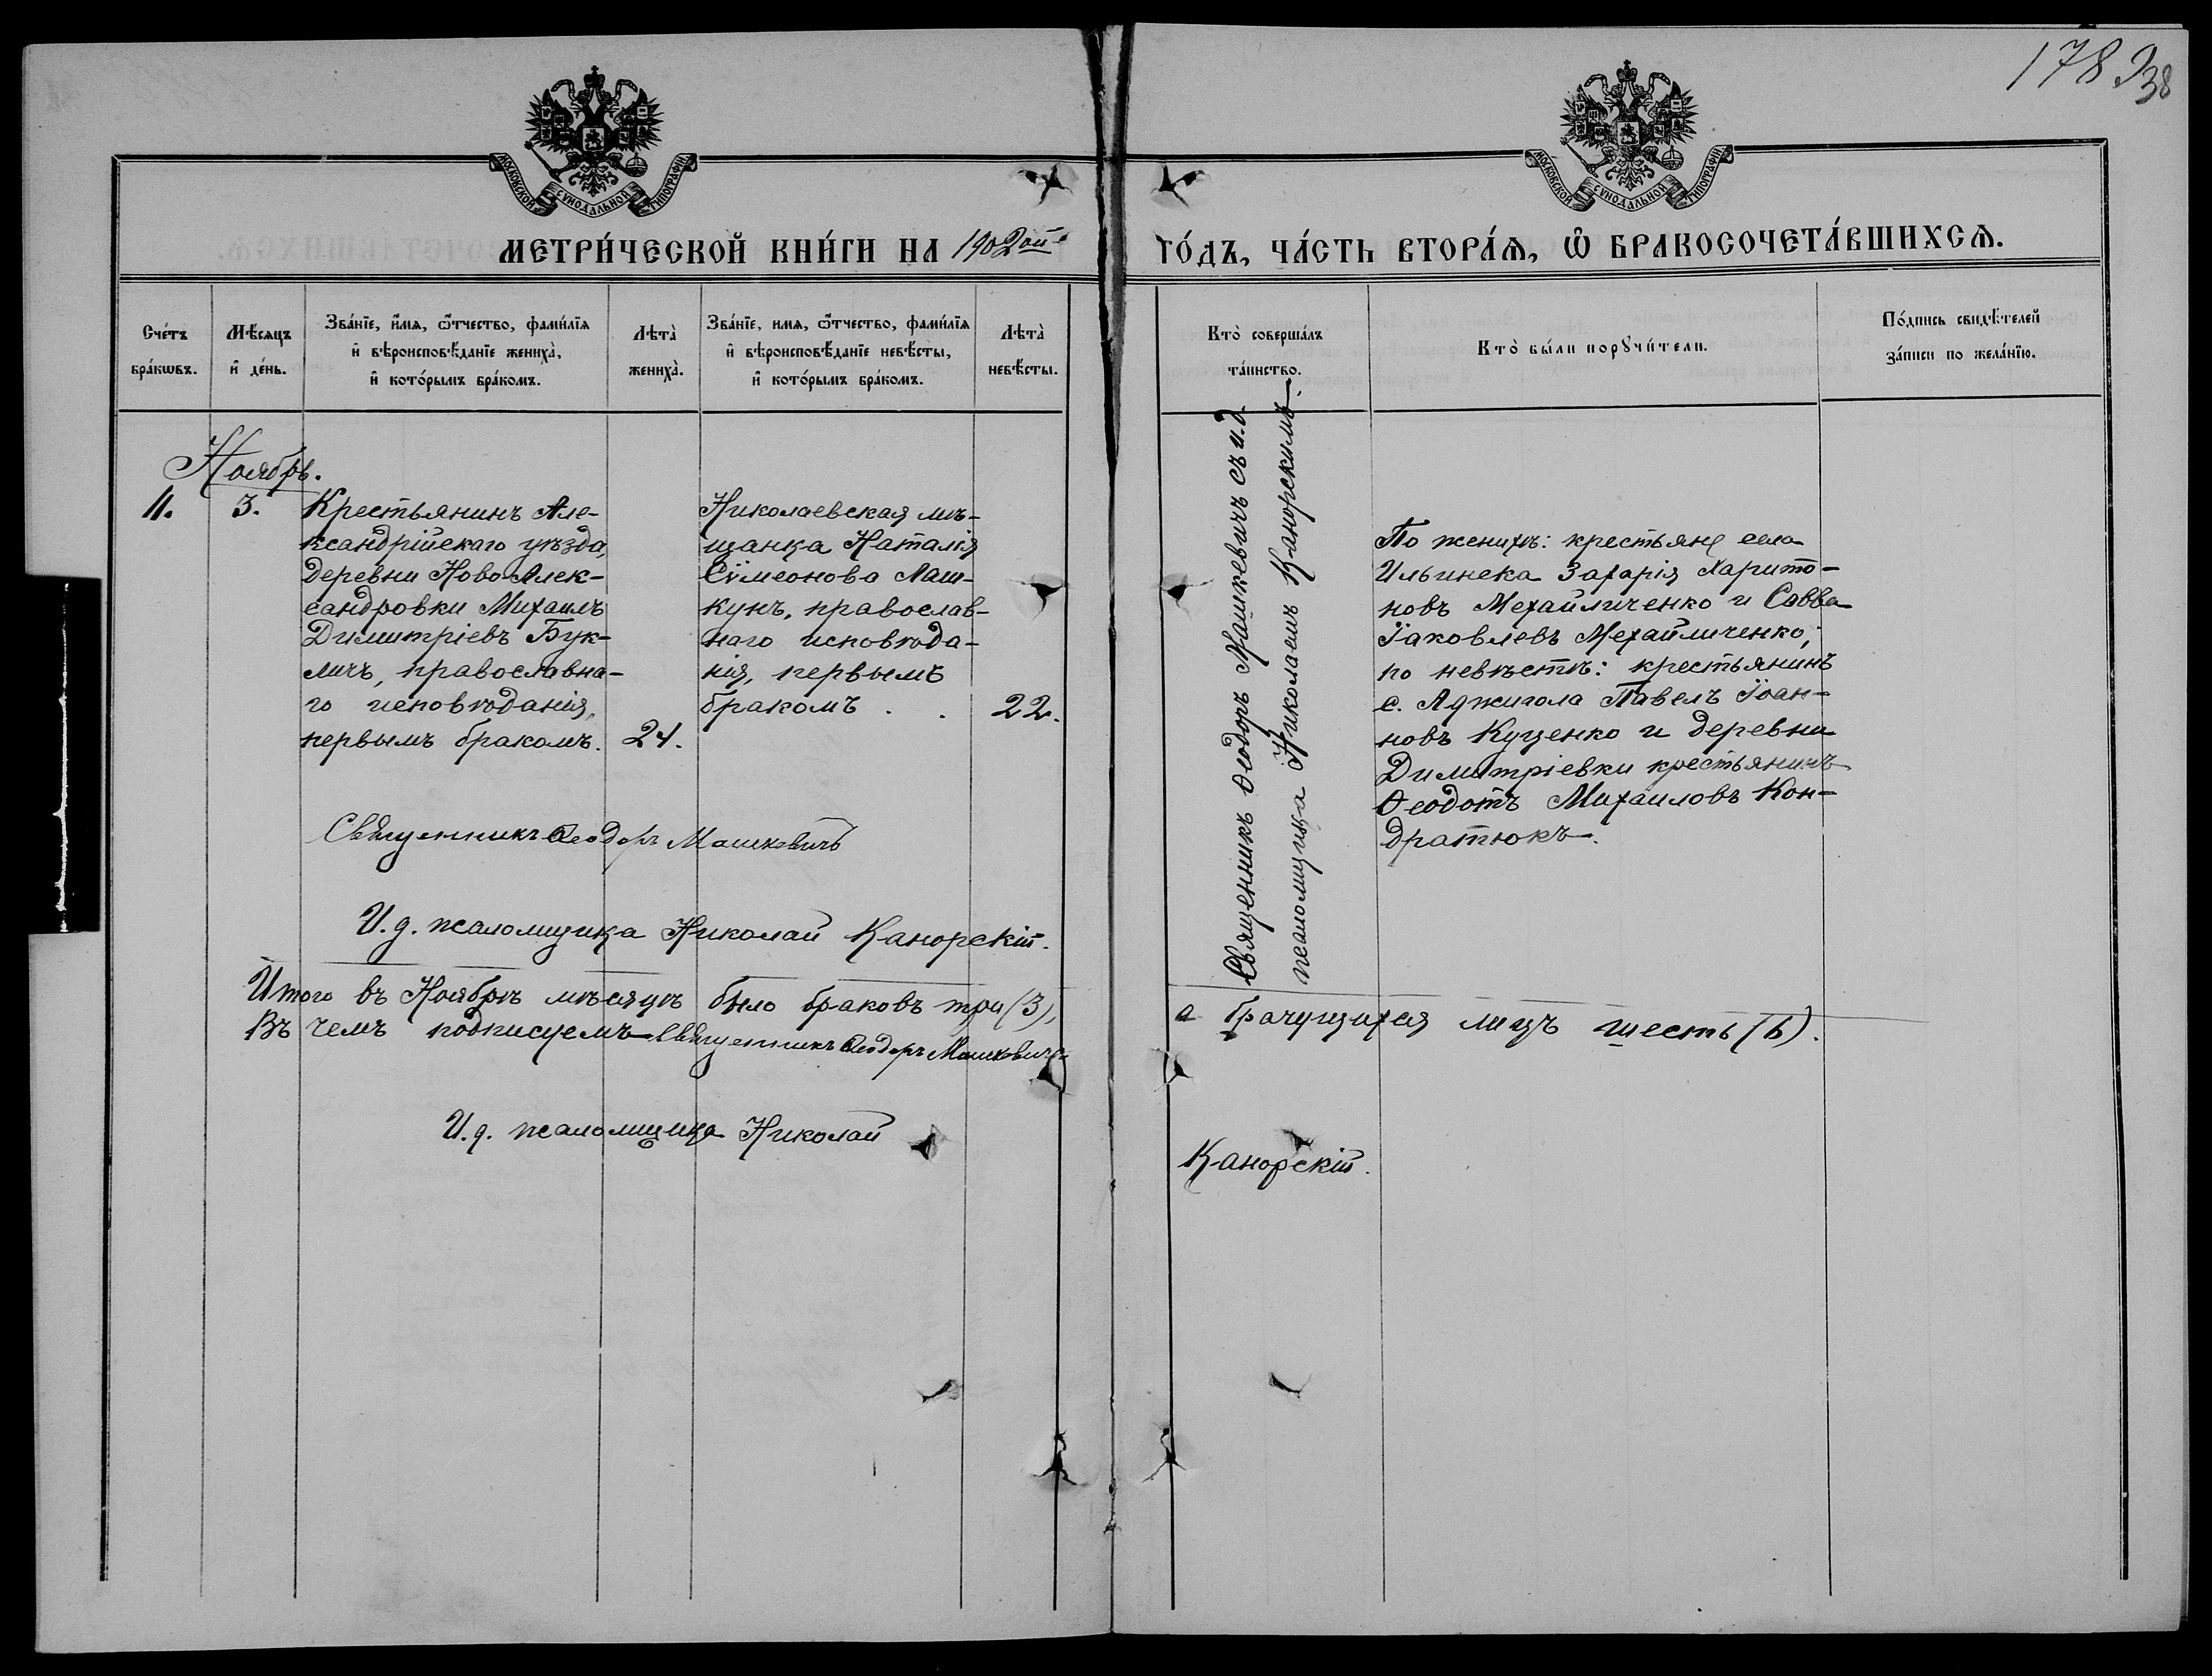 178 938
МОСКОВСКОЙ СУНОДАЛЬНОЙ ТИПОГРАФІИ
МОСКОВСКОЙ СУНОДАЛЬНОЙ ТИПОГРАФІИ
МЕТРИ́ЧЕСКОЙ КНИ́ГИ НА 1902ой ГО́ДЪ, ЧА́СТЬ ВТОРА́Я, Ѿ БРАКОСОЧЕТА́ВШИХСЯ.
Сче́тъ
бра́кѡвъ.
Мѣ́сяцъ
и҆ де́нь.
Зва́нїе, и҆́мя, ѻ҆́тчество, фами́лїя
и҆ вѣроисповѣ́данїе жениха̀,
и҆ кото́рымъ бра́комъ.
Лѣта̀
жениха̀.
Зва́нїе, имя, ѻ҆́тчество, фами́лїя
и҆ вѣроисповѣ́данїе невѣ́сты,
и҆ кото́рымъ бра́комъ.
Лѣта̀
невѣ́сты.
Кто̀ соверша́лъ
та́инство.
Кто̀ бы́ли порꙋчи́тели.
По́дпись свидѣ́телей
за́писи по жела́нїю.
Ноябрь.
11.
3.
Крестьянинъ Але-
ксандрійскаго уѣзда,
деревни Ново-Алек-
сандровки Михаилъ
Димитріевъ Бук-
личъ, православна-
го исповѣданія,
первымъ бракомъ.
24.
Николаевская мѣ-
щанка Наталія
Сѵмеонова Лаш-
кунъ, православ-
наго исповѣда-
нія, первымъ
бракомъ . .
22.
Священникъ Ѳеодоръ Машкевичъ съ и.д.
псаломщика Николаемъ Канорскимъ.
По женихѣ: крестьяне села
Ильинска Захарія Харито-
новъ Мехайличенко и Савва
Іаковлевъ Мехайличенко;
по невѣстѣ: крестьянинъ
с. Аджигола Павелъ Іоан-
новъ Куценко и деревни
Димитріевки крестьянинъ
Ѳеодотъ Михаиловъ Кон-
дратюкъ.
Священникъ Ѳеодоръ Машкевичъ
И.д. псаломщика Николай Канорскій.
Итого въ Ноябрѣ мѣсяцѣ было браковъ три (3), а брачущихся лицъ шесть (6).
Въ чемъ подписуемъ Священникъ Ѳеодоръ Машкевичъ
И.д. псаломщика Николай Канорскій.